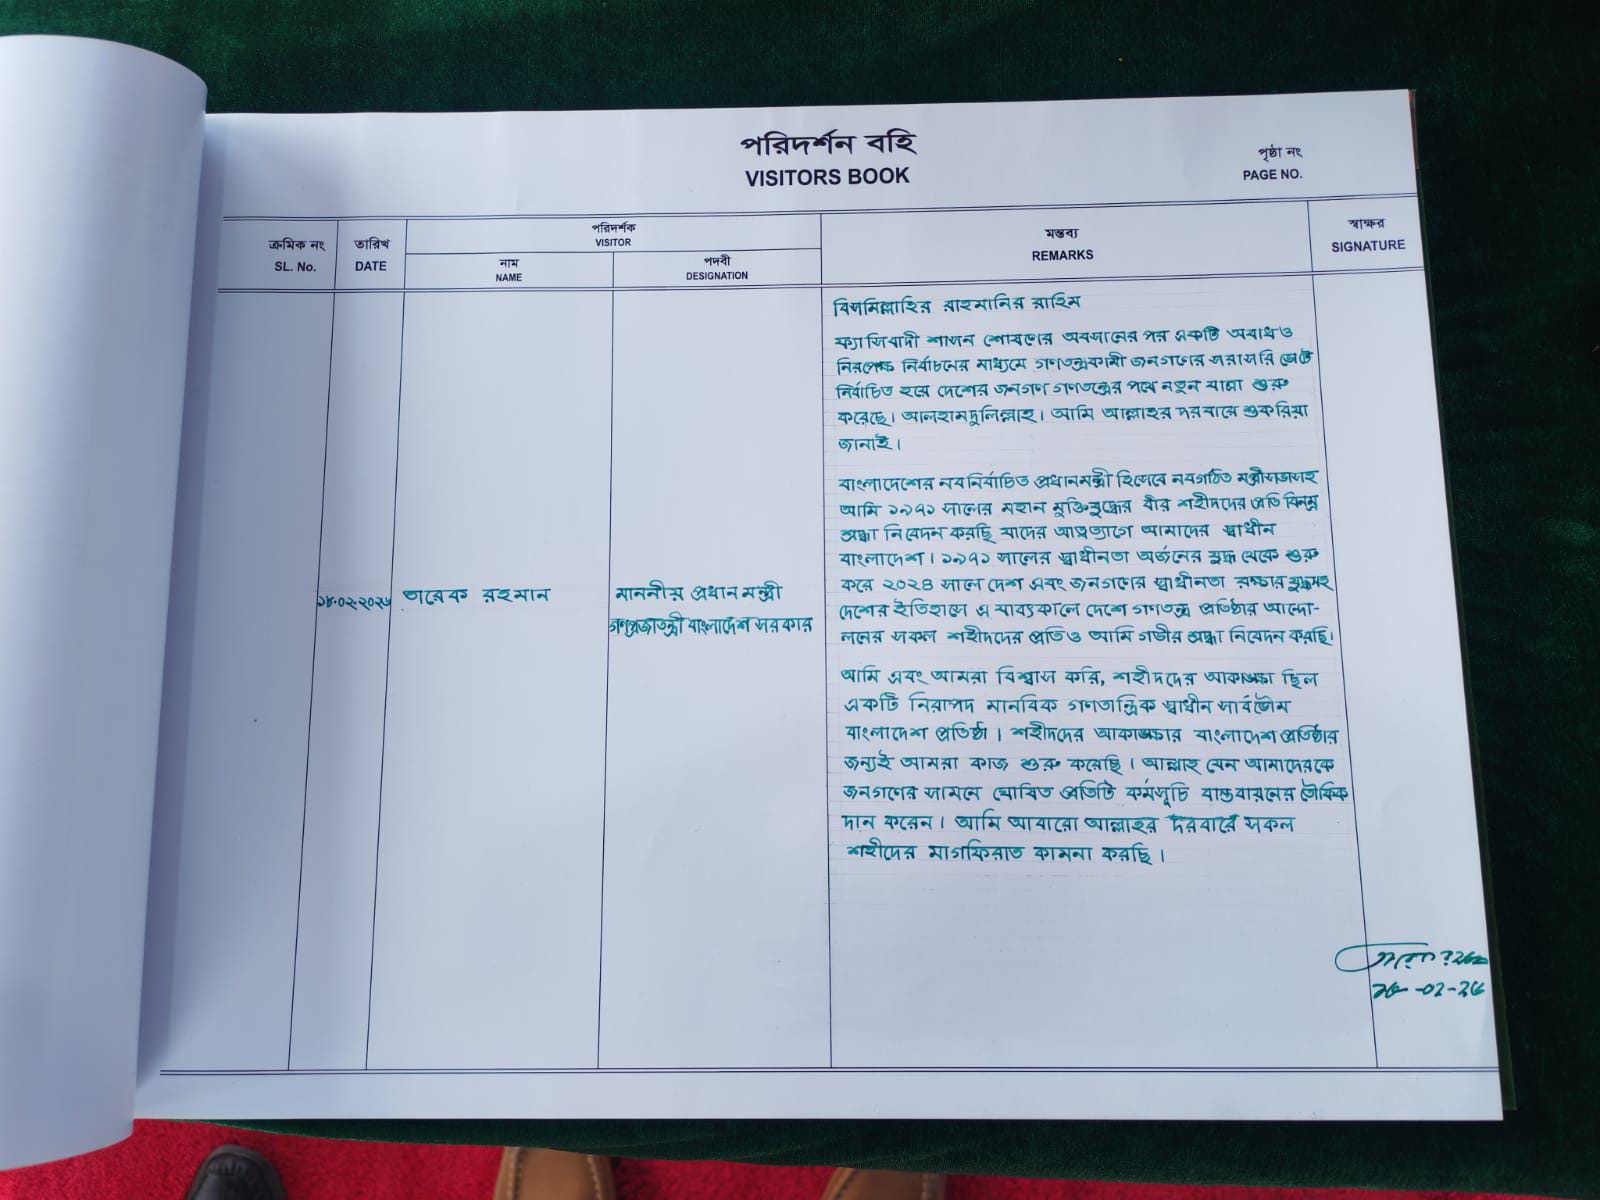 পরিদর্শন বহি
VISITORS BOOK
পৃষ্ঠা নং
PAGE NO.
ক্রমিক নং
SL. No.
তারিখ
DATE
পরিদর্শক
VISITOR
নাম
NAME
পদবী
DESIGNATION
মন্তব্য
REMARKS
স্বাক্ষর
SIGNATURE
১৮-০২-২০২৬
তারেক রহমান
মাননীয় প্রধান মন্ত্রী
গণপ্রজাতন্ত্রী বাংলাদেশ সরকার
বিসমিল্লাহির রাহমানির রাহিম
ফ্যাসিবাদী শাসন শোষণের অবসানের পর একটি অবাধ ও
নিরপেক্ষ নির্বাচনের মাধ্যমে গণতন্ত্রকামী জনগণের সরাসরি ভোটে
নির্বাচিত হয়ে দেশের জনগণ গণতন্ত্রের পথে নতুন যাত্রা শুরু
করেছে। আলহামদুলিল্লাহ। আমি আল্লাহর দরবারে শুকরিয়া
জানাই।
বাংলাদেশের নবনির্বাচিত প্রধানমন্ত্রী হিসেবে নবগঠিত মন্ত্রীসভাসহ
আমি ১৯৭১ সালের মহান মুক্তিযুদ্ধের বীর শহীদদের প্রতি বিনম্র
শ্রদ্ধা নিবেদন করছি যাদের আত্মত্যাগে আমাদের স্বাধীন
বাংলাদেশ। ১৯৭১ সালের স্বাধীনতা অর্জনের যুদ্ধ থেকে শুরু
করে ২০২৪ সালে দেশ এবং জনগণের স্বাধীনতা রক্ষার যুদ্ধসহ
দেশের ইতিহাসে এ যাবৎকালে দেশে গণতন্ত্র প্রতিষ্ঠার আন্দো-
লনের সকল শহীদদের প্রতিও আমি গভীর শ্রদ্ধা নিবেদন করছি।
আমি এবং আমরা বিশ্বাস করি, শহীদদের আকাঙ্ক্ষা ছিল
একটি নিরাপদ মানবিক গণতান্ত্রিক স্বাধীন সার্বভৌম
বাংলাদেশ প্রতিষ্ঠা। শহীদদের আকাঙ্ক্ষার বাংলাদেশ প্রতিষ্ঠার
জন্যই আমরা কাজ শুরু করেছি। আল্লাহ যেন আমাদেরকে
জনগণের সামনে ঘোষিত প্রতিটি কর্মসূচি বাস্তবায়নের তৌফিক
দান করেন। আমি আবারো আল্লাহর দরবারে সকল
শহীদের মাগফিরাত কামনা করছি।